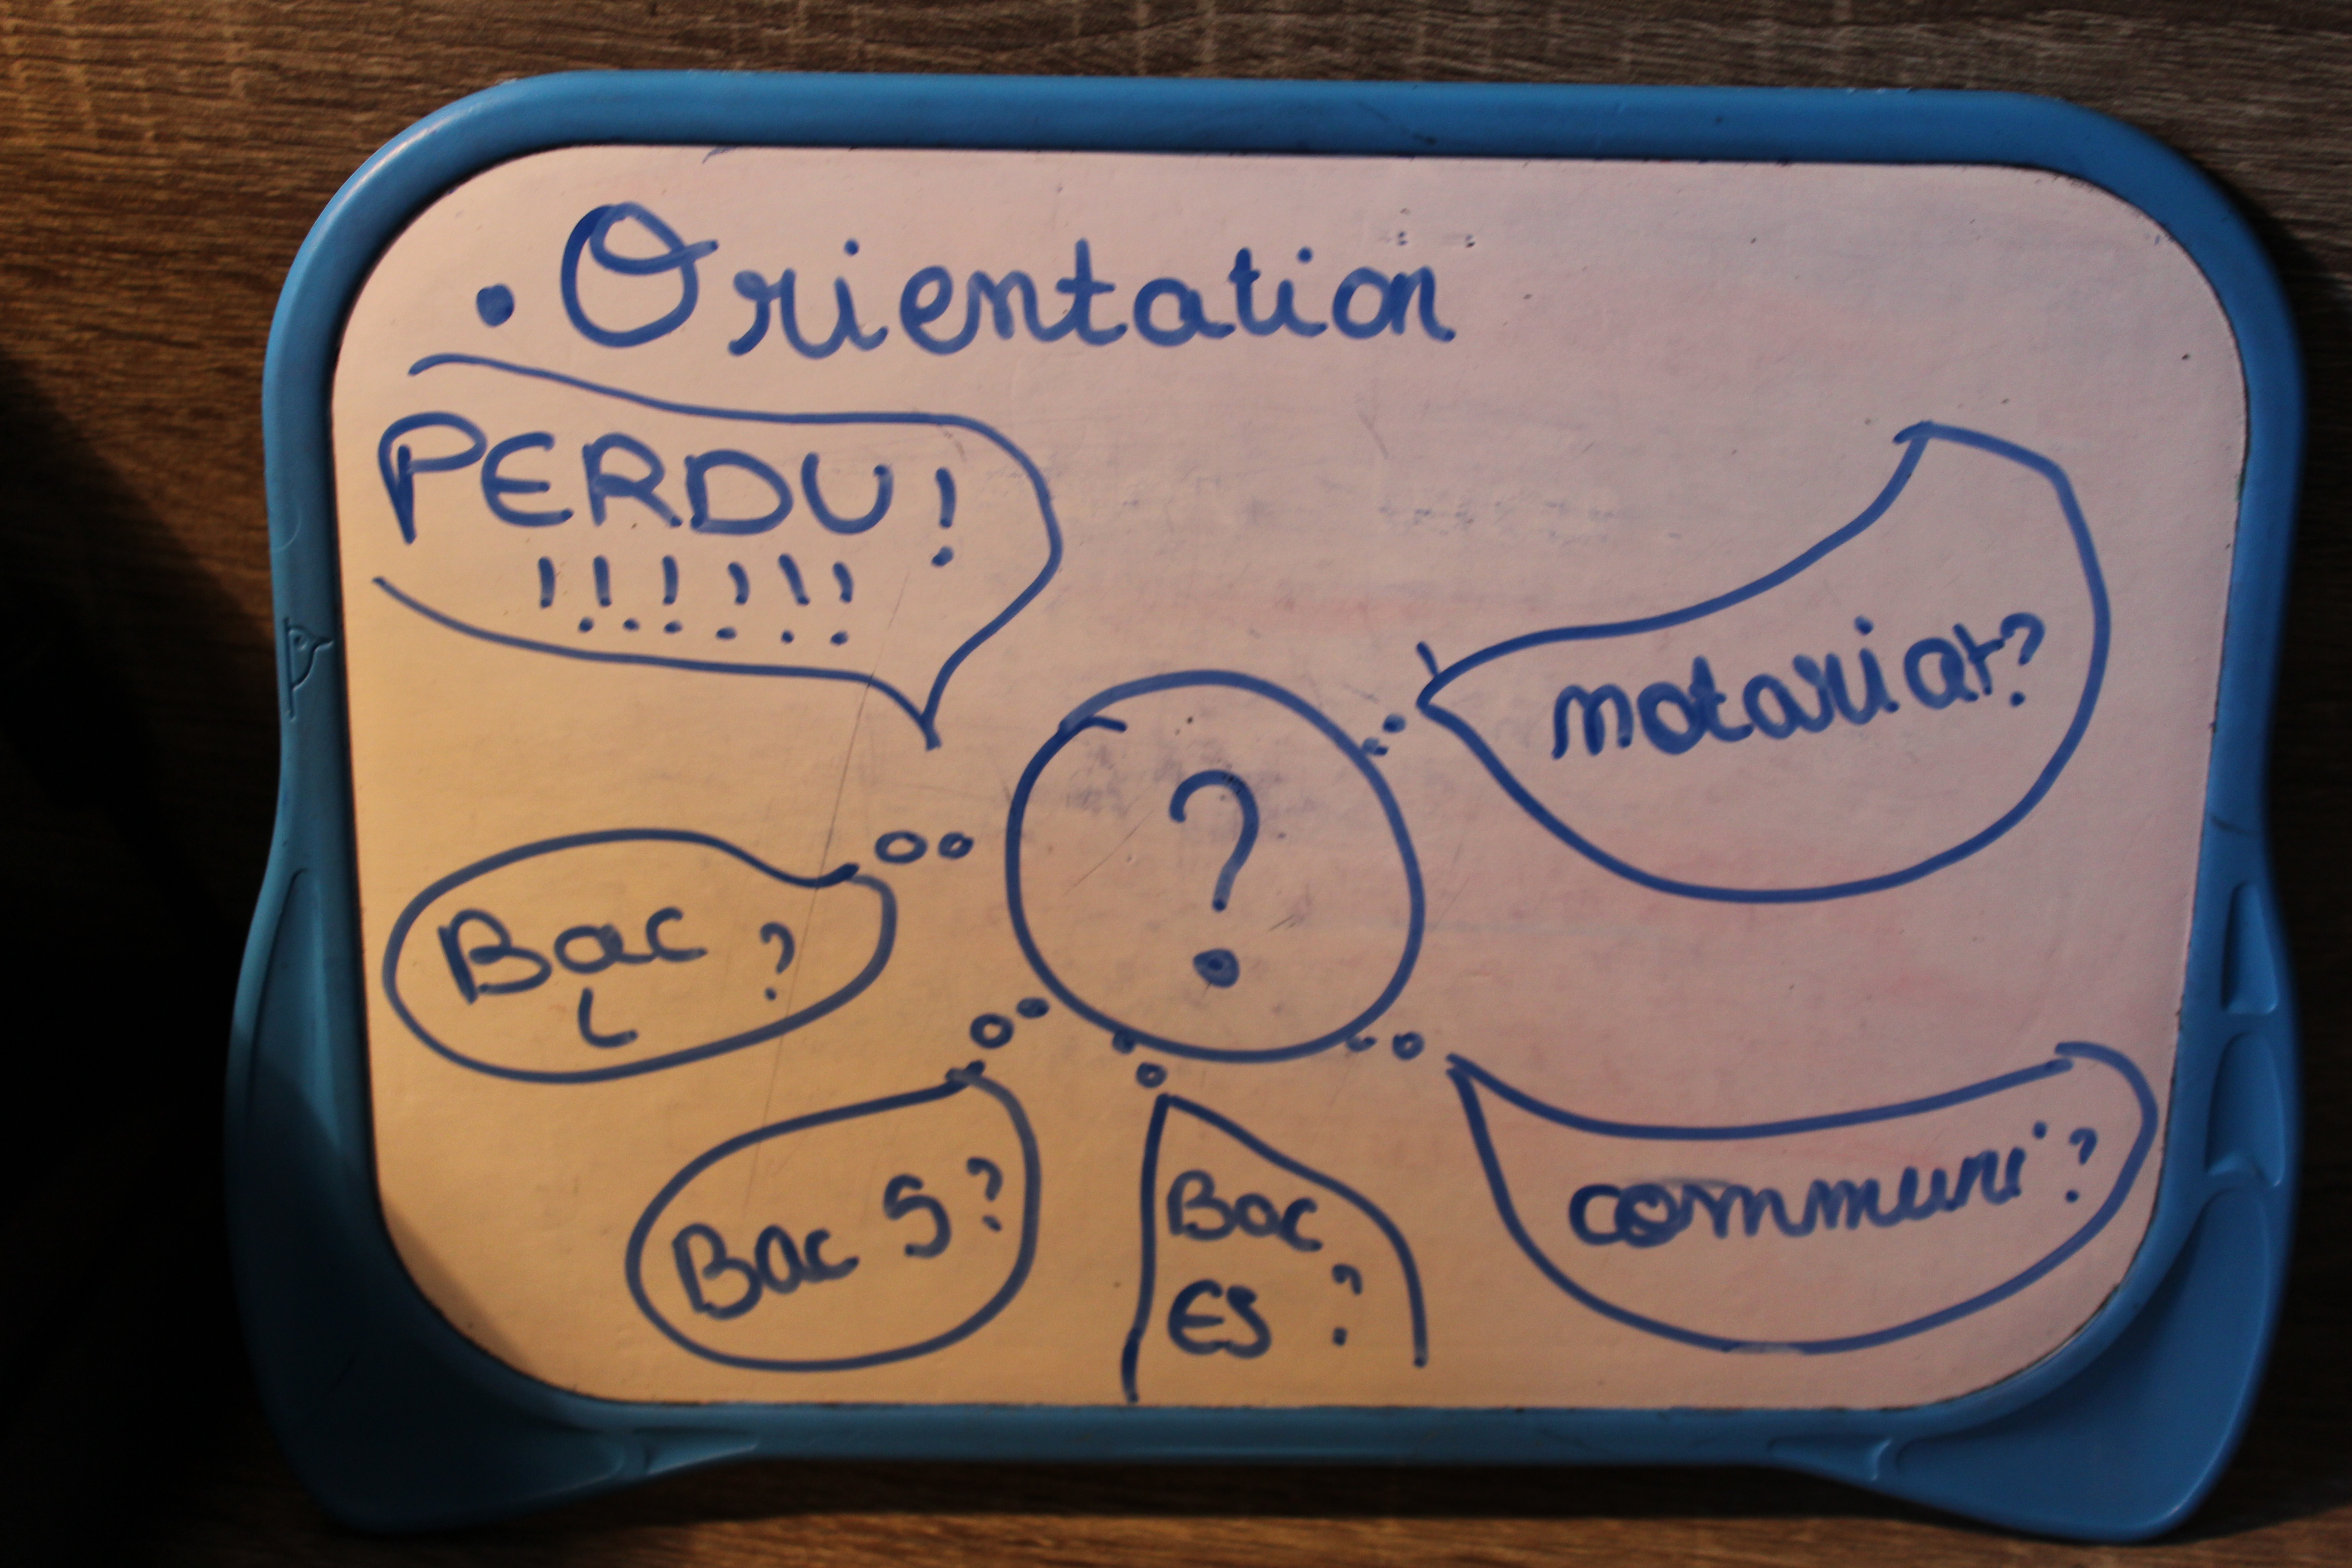 . Orientation
PERDU !
! ! ! ! ! !
notariat ?
?
Bac ?
L
Bac S ?
Bac
ES ?
communi ?